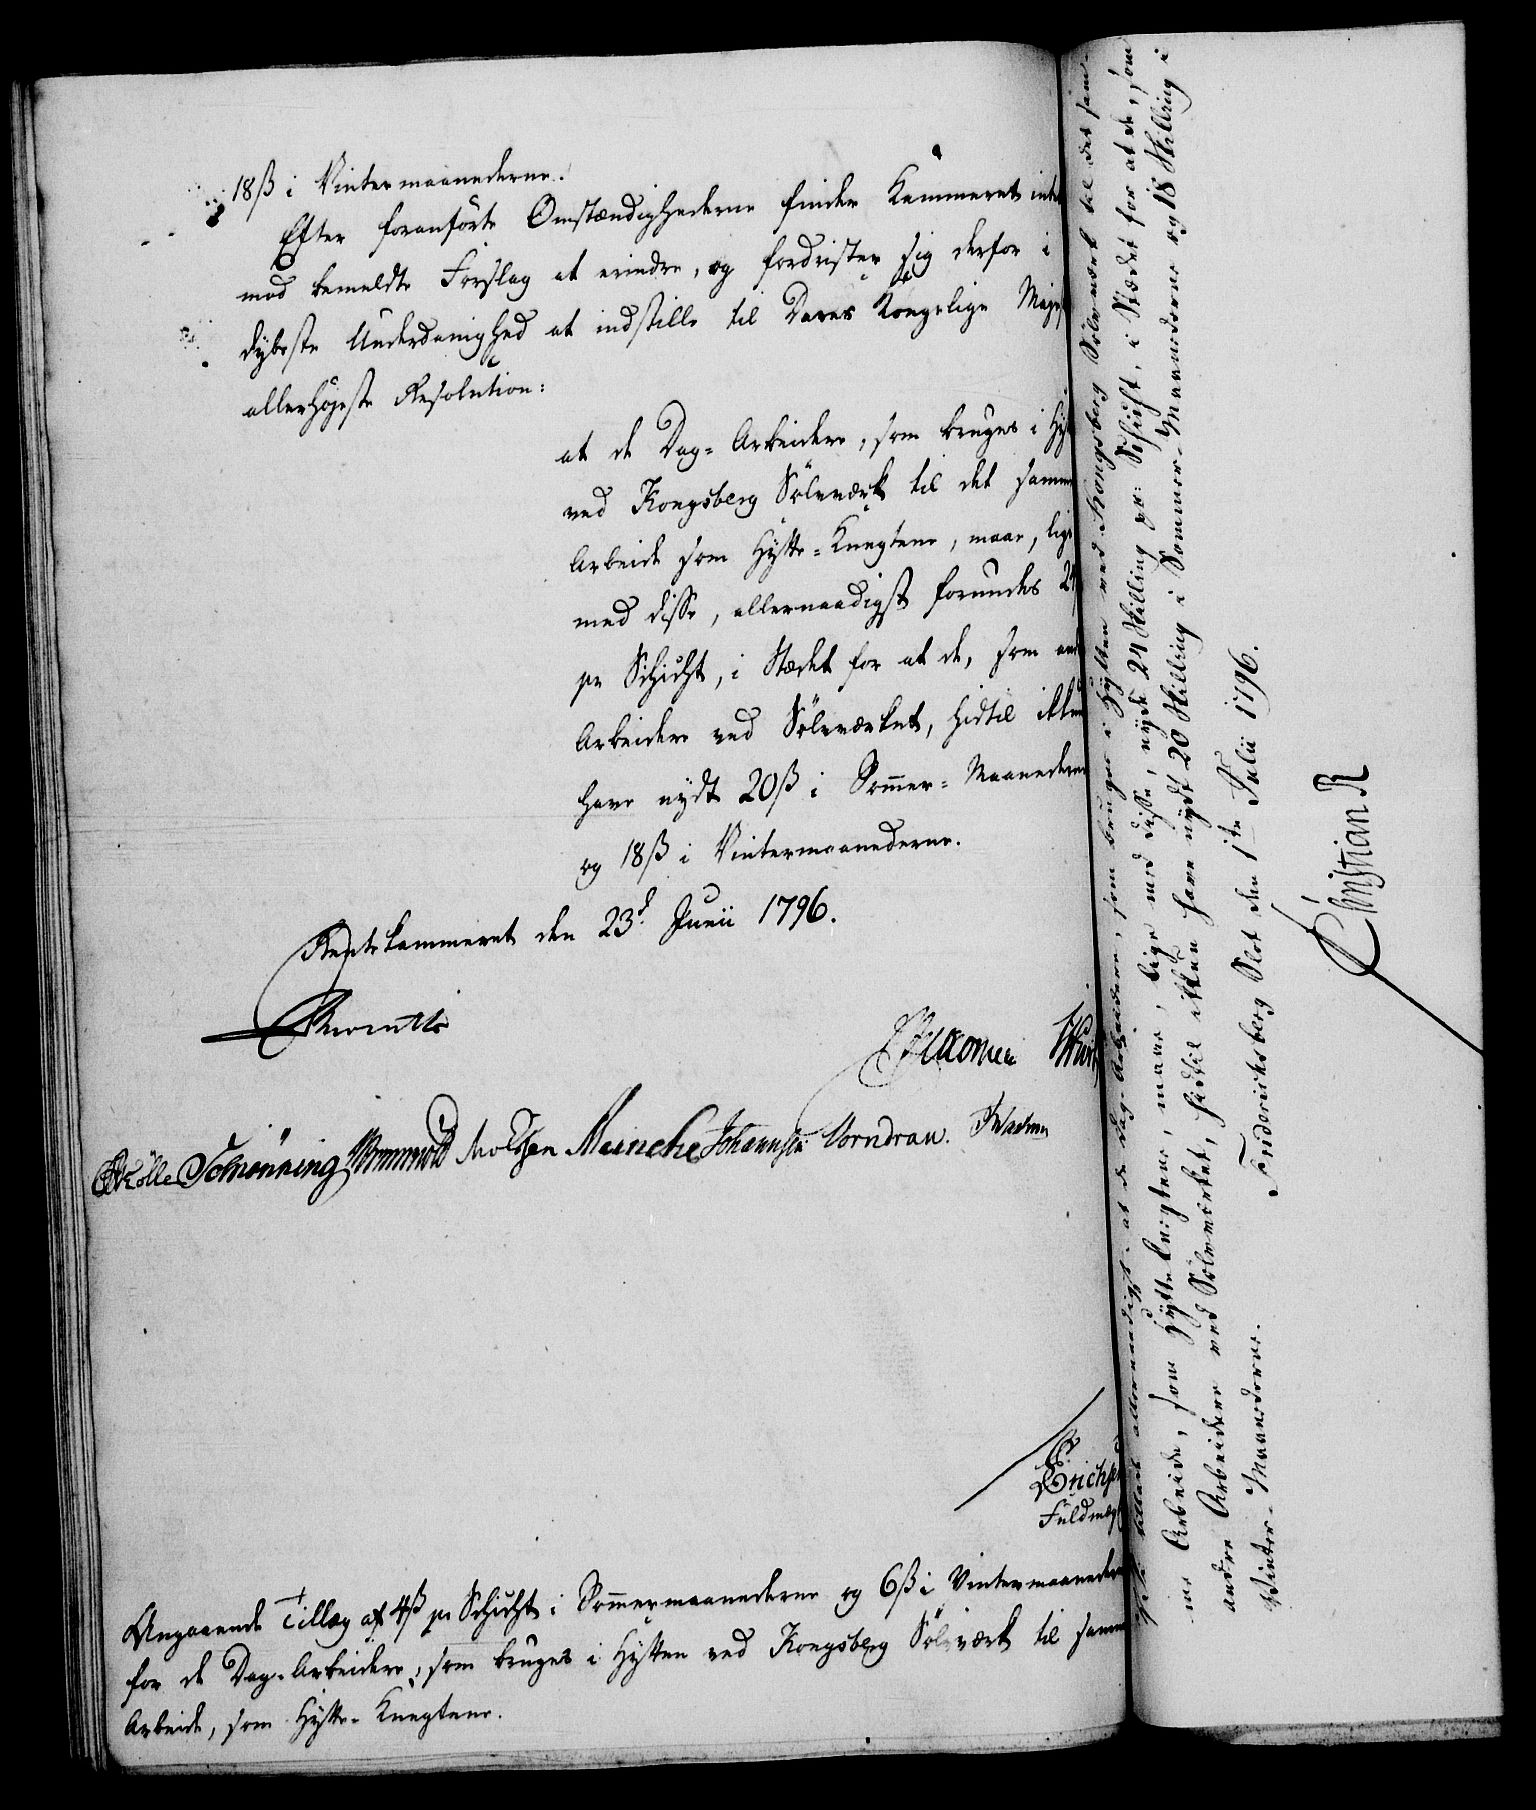 18ß i Vintermaanederne.
Efter foranførte Omstændighederne finder Kammeret intet
mod bemeldte Forslag at erindre, og fordrister sig derfor i
dybeste Underdanighed at indstille til Deres Kongelige Maj
allerhøjeste Resolution:
at de Dag-Arbeidere, som bruges i Hyt
ved Kongsberg Sølvværk til det samme
Arbeide som Hytte-Knegtene, maae, lige
med disse, allernaadigst forundes 24
pr Schicht, i Stædet for at de, som and
Arbeidere ved Sølvværket, hidtil ikkun
have nydt 20ß i Sommer-Maanederne
og 18ß i Vintermaanederne.
Rentekammeret den 23d Junii 1796.
Schønning Meinche Johannsen Vorndran.
Erichs
Fuldmæg
Angaaende Tillæg af 4ß pr Schicht i Sommermaanederne og 6ß i Vintermaaneder
for de Dag-Arbeidere, som bruges i Hytten ved Kongsberg Sølvværk til samme
Arbeide, som Hytte-Knegtene.
allernaadigst, at de Dag-Arbeidere, som bruges i Hytten ved Kongsberg Sølvværk til det sam-
me Arbeide, som Hytteknegtene, maae, lige med disse, nyde 24 Skilling pr: Schicht, i Stædet for at de, som
andre Arbeidere ved Sølvværket, hidtil ikkun have nydt 20 Skilling i Sommer-Maanederne og 18 Skilling i
Vinter-Maanederne.
Friderichsberg Slot den 1te Julii 1796.
Christian R